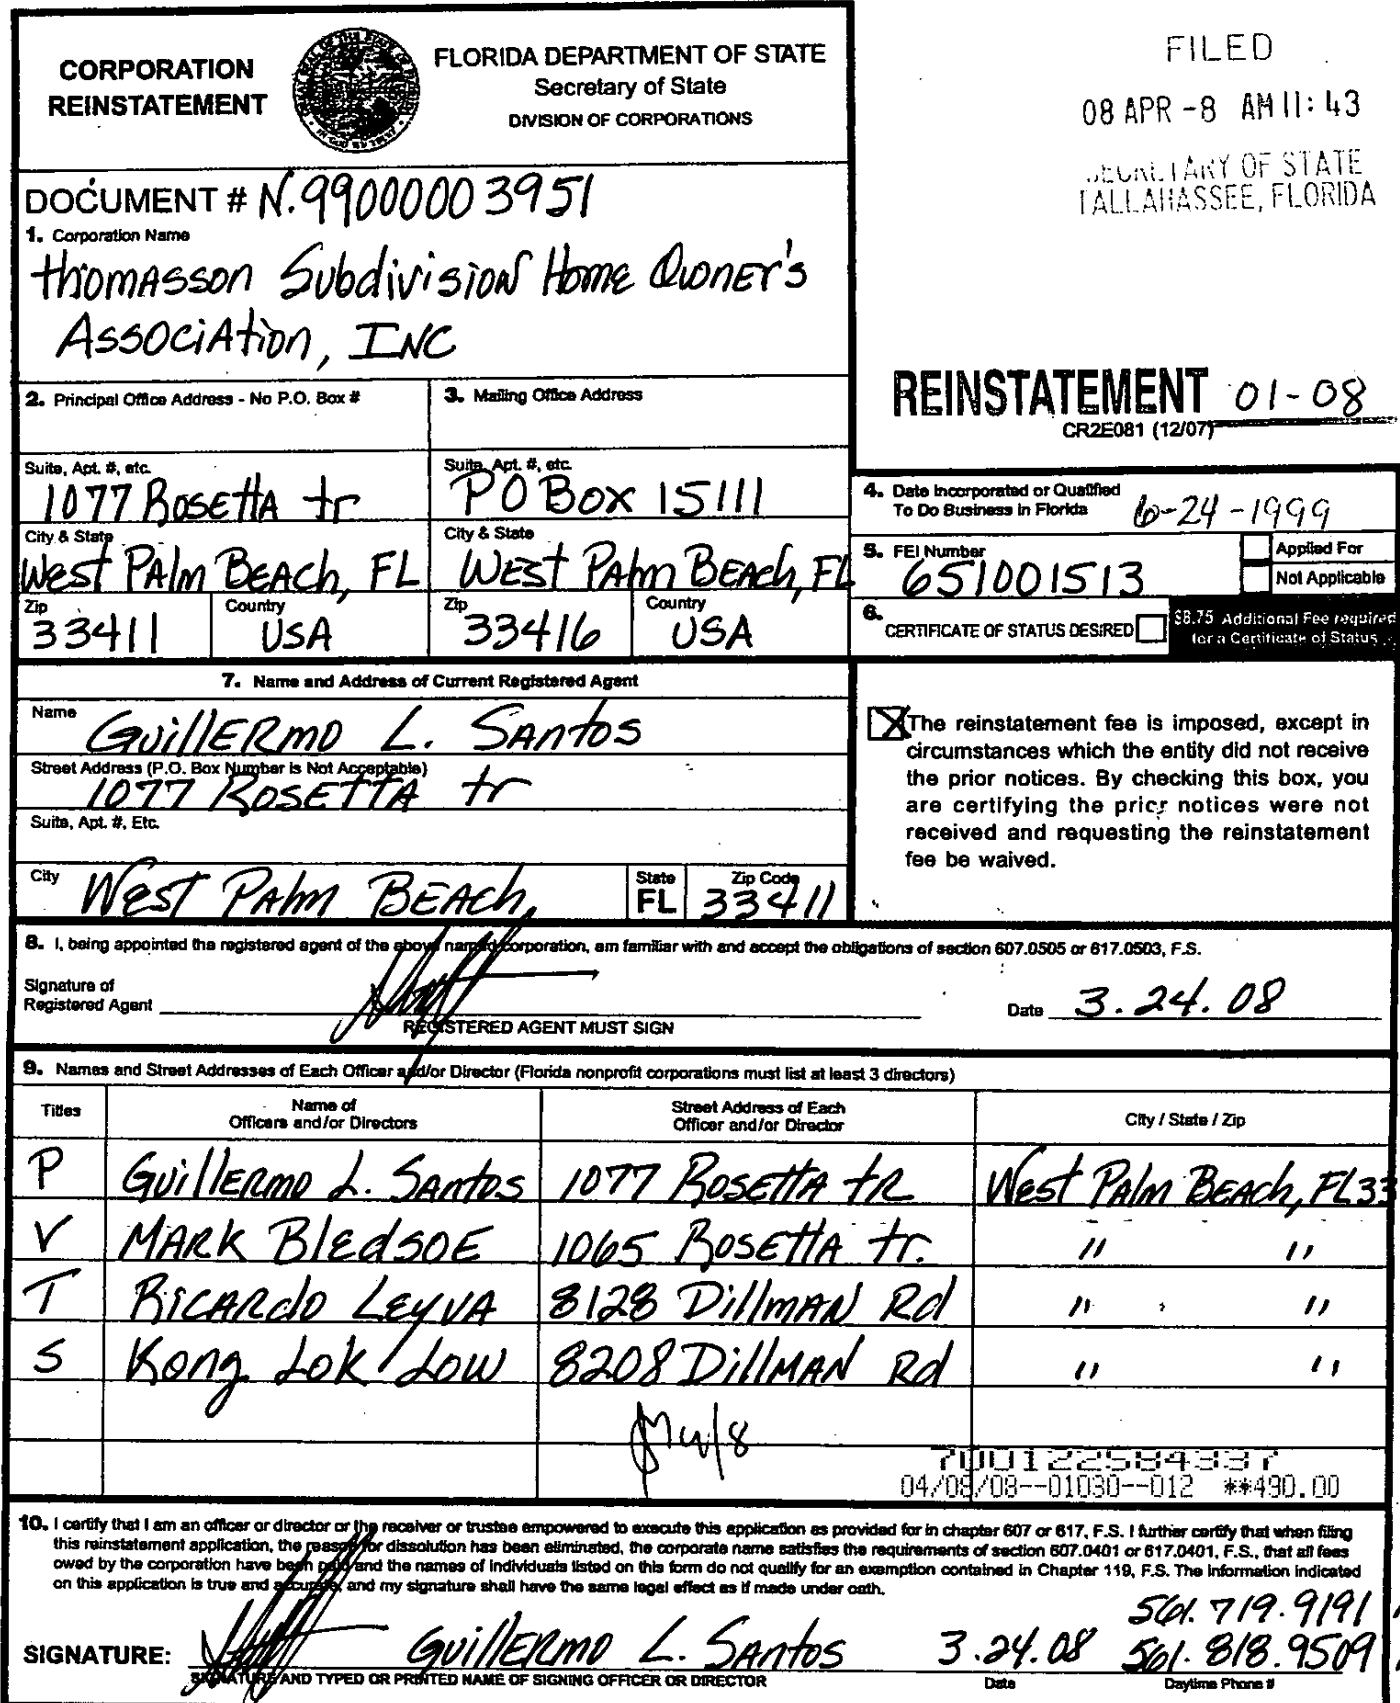 CORPORATION
REINSTATEMENT
FLORIDA DEPARTMENT OF STATE
Secretary of State
DIVISION OF CORPORATIONS
FILED
08 APR -8 AM 11:43
SECRETARY OF STATE
TALLAHASSEE, FLORIDA
DOCUMENT # N.99000003951
1. Corporation Name
Thomasson Subdivision Home Owner's
Association, INC
REINSTATEMENT 01-08
CR2E081 (12/07)
2. Principal Office Address - No P.O. Box #
3. Mailing Office Address
Suite, Apt. #, etc.
1077 Rosetta tr
Suite, Apt. #, etc.
PO Box 15111
City & State
West Palm Beach, FL
City & State
West Palm Beach, FL
Zip
33411
Country
USA
Zip
33416
Country
USA
4. Date Incorporated or Qualified
To Do Business in Florida
6-24-1999
5. FEI Number
651001513
Applied For
Not Applicable
6. CERTIFICATE OF STATUS DESIRED
$8.75 Additional Fee required
for a Certificate of Status
7. Name and Address of Current Registered Agent
Name
Guillermo L. Santos
Street Address (P.O. Box Number is Not Acceptable)
1077 Rosetta tr
Suite, Apt. #, Etc.
City
West Palm Beach,
State
FL
Zip Code
33411
The reinstatement fee is imposed, except in
circumstances which the entity did not receive
the prior notices. By checking this box, you
are certifying the prior notices were not
received and requesting the reinstatement
fee be waived.
8. I, being appointed the registered agent of the above named corporation, am familiar with and accept the obligations of section 607.0505 or 617.0503, F.S.
Signature of
Registered Agent
REGISTERED AGENT MUST SIGN
Date 3.24.08
9. Names and Street Addresses of Each Officer and/or Director (Florida nonprofit corporations must list at least 3 directors)
Titles
Name of
Officers and/or Directors
Street Address of Each
Officer and/or Director
City / State / Zip
P Guillermo L. Santos 1077 Rosetta tr West Palm Beach, FL 33
V Mark Bledsoe 1065 Rosetta tr. " "
T Ricardo Leyva 8128 Dillman Rd " "
S Kong Lok Low 8208 Dillman Rd " "
4/8
700122584337
04/08/08--01030--012 **490.00
10. I certify that I am an officer or director or the receiver or trustee empowered to execute this application as provided for in chapter 607 or 617, F.S. I further certify that when filing
this reinstatement application, the reason for dissolution has been eliminated, the corporate name satisfies the requirements of section 607.0401 or 617.0401, F.S., that all fees
owed by the corporation have been paid and the names of individuals listed on this form do not qualify for an exemption contained in Chapter 119, F.S. The information indicated
on this application is true and accurate, and my signature shall have the same legal effect as if made under oath.
561.719.9191
SIGNATURE: Guillermo L. Santos 3.24.08 561.818.9509
SIGNATURE AND TYPED OR PRINTED NAME OF SIGNING OFFICER OR DIRECTOR
Date
Daytime Phone #